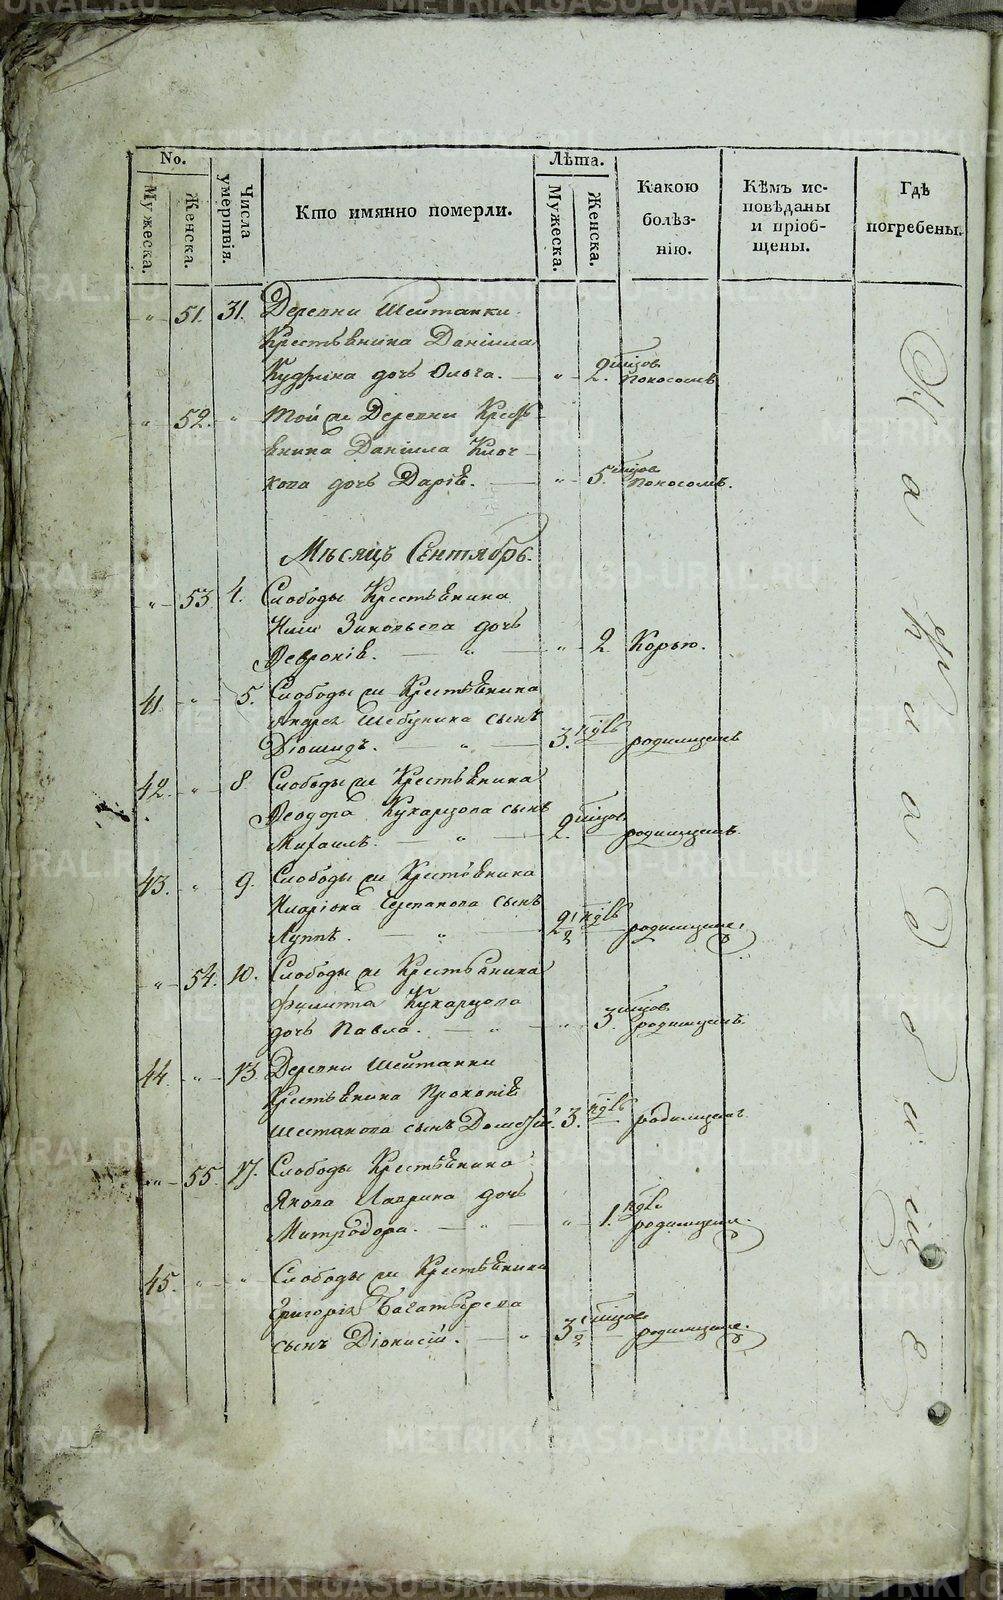 No.
Мужеска.
Женска.
Числа умертвія.
Кто имянно померли.
Лѣта.
Мужеска.
Женска.
Какою болѣз-
нію.
Кѣмъ ис-
повѣданы
и пріоб-
щены.
Гдѣ
погребены.
„ 51. 31. Деревни Шейтанки
Крестьянина Даніила
дочь Ольга. „ 2. мцов Поносомъ
„ 52. „ Той же Деревни Кресть
янина Даніила Клоч-
кова дочь Дарія. „ 5. мцов Поносомъ.
Мѣсяцъ Сентябрь.
„ 53 4. Слободы Крестьянина
дочь
Февронія. „ „ 2 Корью.
41. „ 5. Слободы же Крестьянина
Андрея Шебунина сынъ
Діомидъ. „ 3. родимцемъ
42. „ 8 Слободы же Крестьянина
Феодора Кукарцова сынъ
Михаилъ. „ 2. мцов родимцемъ.
43. „ 9. Слободы же Крестьянина
Иларіона Черепанова сынъ
Луппъ. „ родимцемъ
„ 54. 10. Слободы же Крестьянина
Филиппа Кукарцова
дочь Павла. „ „ 3 мцов родимцемъ.
44. „ 13 Деревни Шейтанки
Крестьянина Прокопія
Шестакова сынъ 3. родимцемъ
„ 55. 17. Слободы Крестьянина
Якова дочь
Митродора. „ „ 1. родимцемъ.
45. „ „ Слободы же Крестьянина
Григорія Багатырева
сынъ Діонисій. „ 3 родимцемъ.
На кладбищѣ
METRIKI.GASO-URAL.RU